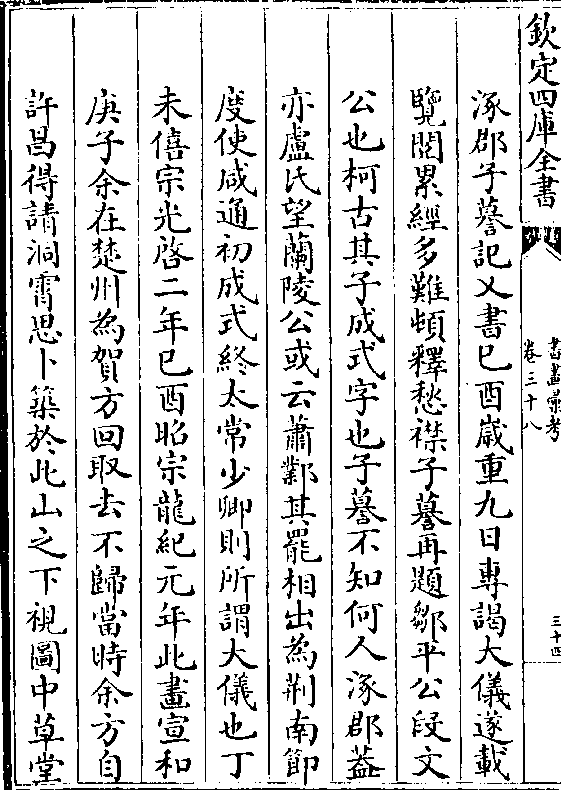 欽定四庫全書
書畫彙考
卷三十八
三十四
涿郡子蓦記又書已酉嵗重九日專謁大儀遂載
覽閲累經多難頓釋愁襟子蓦再題鄒平公段文
公也柯古其子成式字也子蓦不知何人涿郡葢
亦盧氏望蘭陵公或云蕭鄴其罷相出為荆南節
度使咸通初成式終太常少卿則所謂大儀也丁
未僖宗光啓二年已酉昭宗龍紀元年此畫宣和
庚子余在楚州為賀方回取去不歸當時余方自
許昌得請洞霄思卜築於此山之下視圖中草堂